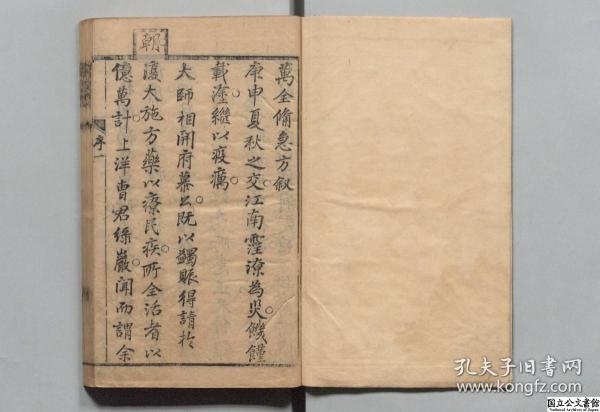 朝
萬全備急方叙
庚申夏秋之交江南霪潦為災饑饉
載塗繼以疫癘
大師相開府慕公既以蠲賑得請於
復大施方藥以療民疾所全活者以
億萬計上洋曹君綠巖聞而謂余
序一
孔夫子旧書网
www.kongfz.com
国立公文書館
National Archives of Japan